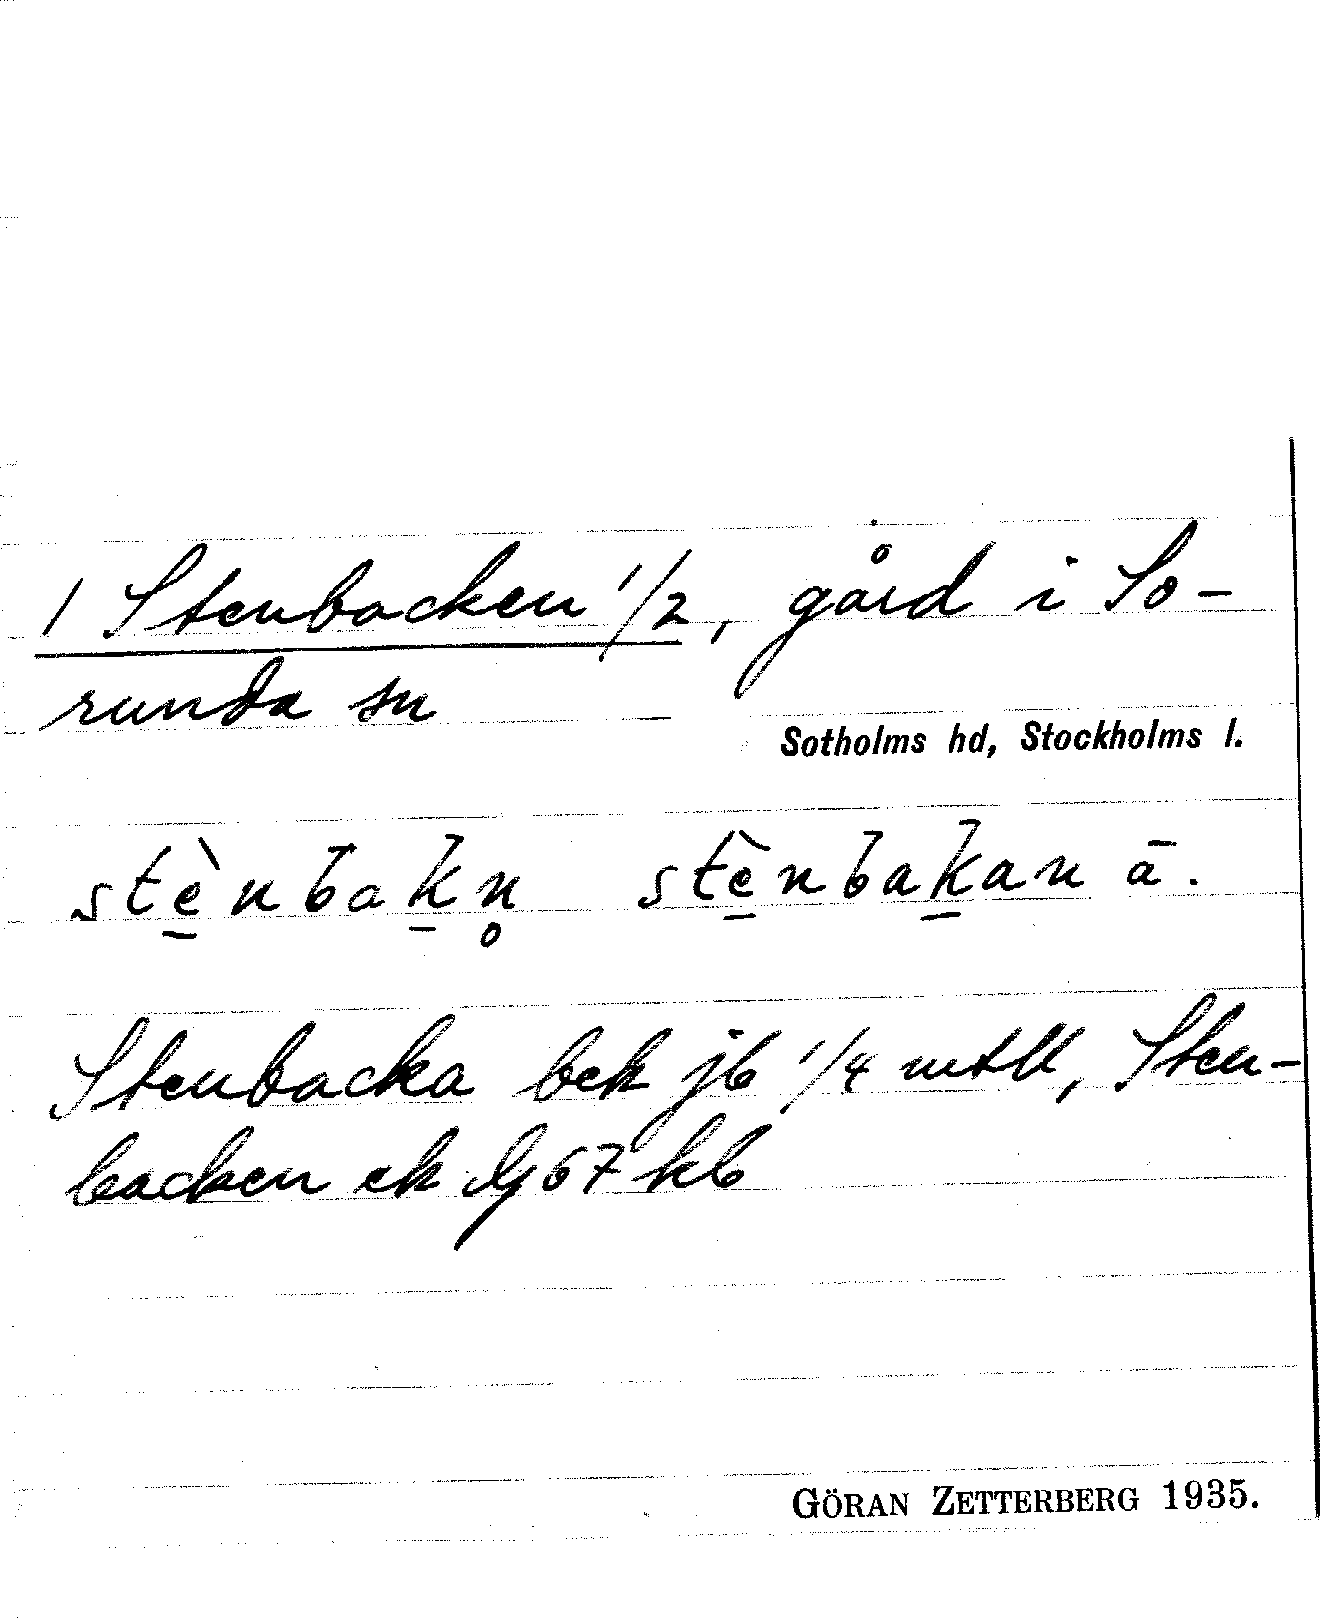 1 Stenbacken 1/2, gård i So-
runda sn
Sotholms hd, Stockholms l.
stè̱nbaḵn̥ stè̱nbaḵan ā.
Stenbacka bek jb 1/4 mtll, Sten-
backen ek lg 67 kb
GÖRAN ZETTERBERG 1935.